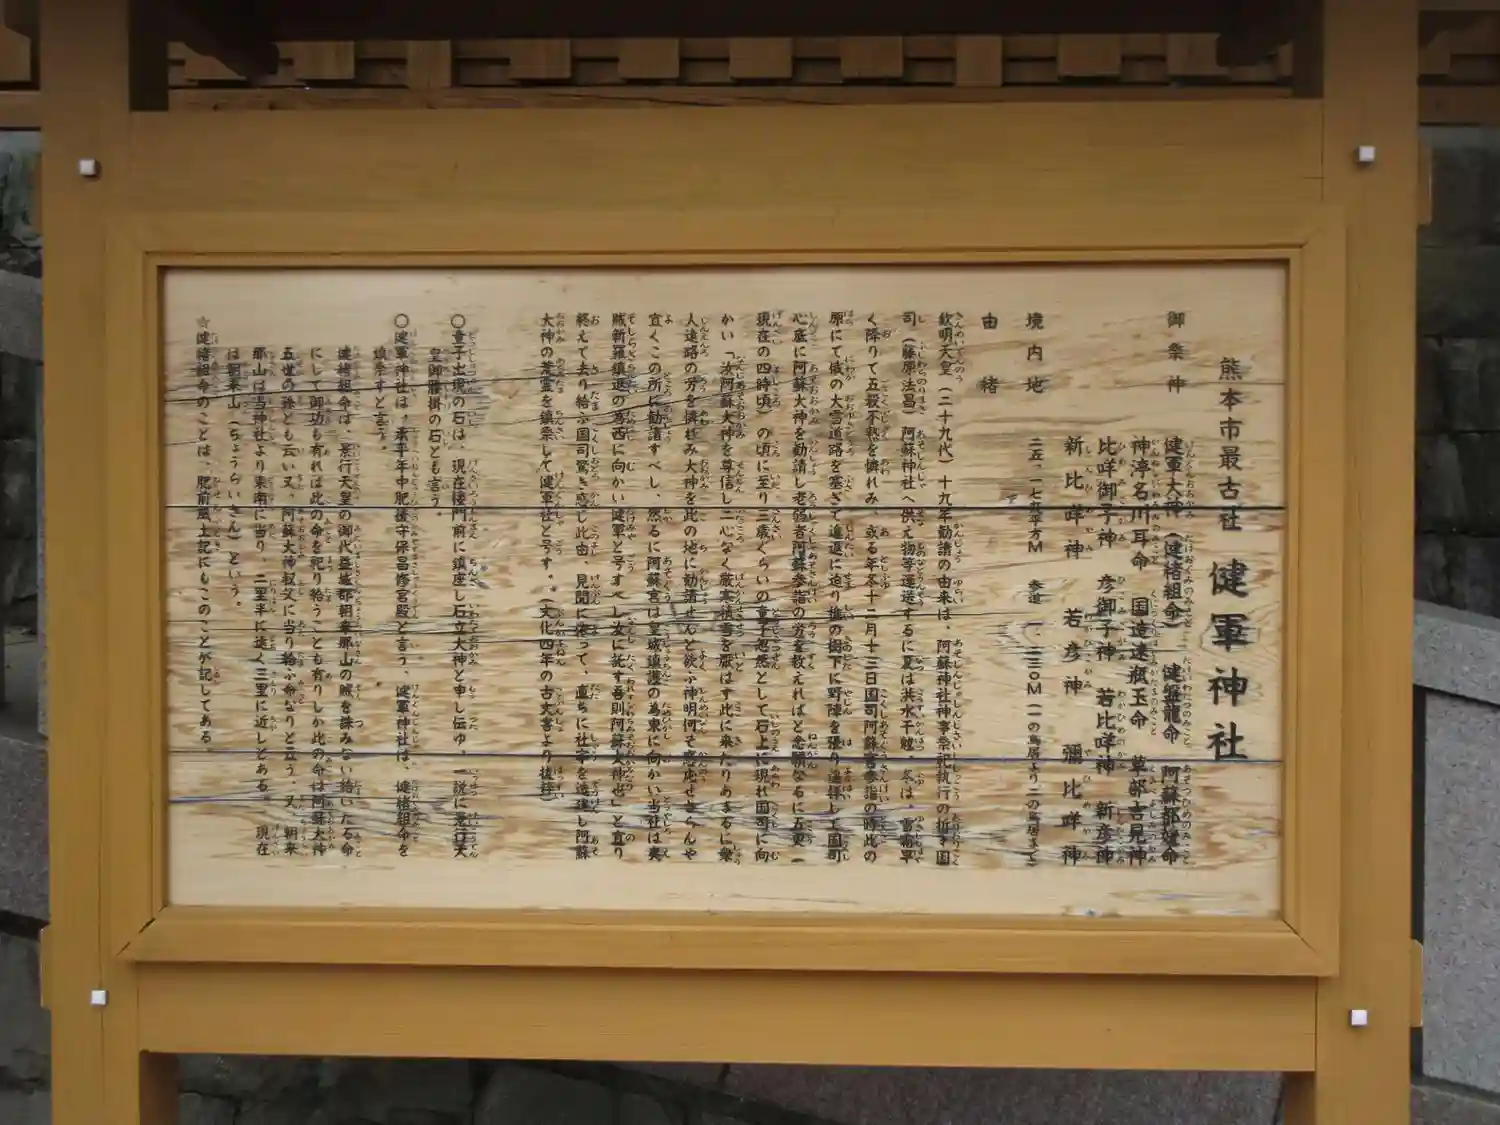 熊本市最古社 健軍神社
御祭神
健軍大神(健緒組命) 健磐龍命 阿蘇都媛命
神渟名川耳命 国造速瓶玉命 草部吉見神
比咩御子神 彦御子神 若比咩神 新彦神
新比咩神 若彦神 彌比咩神
境内地 二五、一七九平方M 参道 一、二三〇M(一の鳥居より二の鳥居まで)
由緒
欽明天皇(二十九代)十九年勧請の由来は、阿蘇神社神事祭祀執行の折々国
司(藤原法昌)阿蘇神社へ供え物等運送するに夏は洪水干魃、冬は、雪霜早
く降りて五穀不熟を憐れみ、或る年冬十二月十三日国司阿蘇宮参詣の時此の
原にて俄の大雪道路を塞ぎて進退に迫り椎の樹下に野陣を張り遥拝して国司
心底に阿蘇大神を勧請し老弱者阿蘇参詣の労を救えればと念願なるに五更(
現在の四時頃)の頃に至り三歳くらいの童子忽然として石上に現れ国司に向
かい「汝阿蘇大神を尊信し二心なく厳寒積雪を厭はす此に来たりあまるに衆
人遠路の労を憐れみ大神を此の地に勧請せんと欲ふ神明何そ感応せさらんや
宜くこの所に勧請すべし、然るに阿蘇宮は皇城鎮護の為東に向かい当社は異
賊新羅鎮退の為西に向かい健軍と号すべし汝に託す吾則阿蘇大神也」と宣り
終えて去り給ふ国司驚き感し此由、見聞に従って、直ちに社宇を造建し阿蘇
大神の荒霊を鎮祭して健軍社と号す。(文化四年の古文書より抜粋)
〇童子出現の石は、現在楼門前に鎮座し石立大神と申し伝ゆ。一説に景行天
皇御腰掛の石とも言う。
〇健軍神社は、承平年中肥後守保昌修宮殿と言う、健軍神社は、健緒組命を
鎮祭すと言う。
健緒組命は、景行天皇の御代益城郡朝来那山の賊を誅みない給いたる命
にして御功も有れば此の命を祀り給うことも有りしか此の命は阿蘇大神
五世の孫とも云い又、阿蘇大神叔父に当り給ふ命なりと云う。又、朝来
那山は当神社より東南に当り、二里半に遠く三里に近しとある。現在
は朝来山(ちょうらいさん)という。
☆健緒組命のことは、肥前風土記にもこのことが記してある。